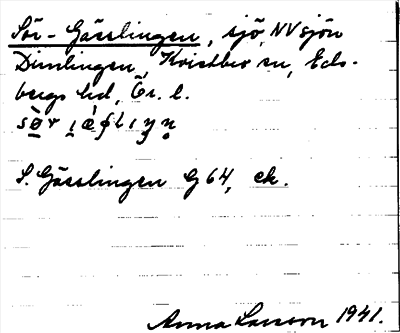 Sör-Gässlingen, sjö, NV sjön
Dimlingen, Kristbergs sn, Eds-
bergs hd, Ör. l.
S. Gässlingen G64, ek.
Anna Larsson 1941.